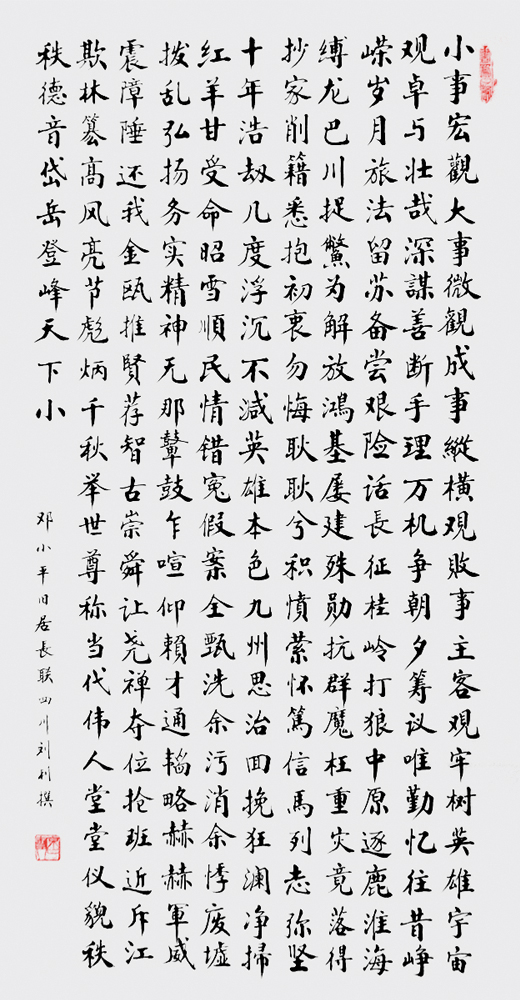 小事宏觀大事微觀成事縱橫观敗事主客观牢树英雄宇宙
观卓与壮哉深謀善断手理万机争朝夕筹议唯勤忆往昔峥
嵘岁月旅法留苏备尝艰险话長征桂岭打狼中原逐鹿淮海
缚龙巴川捉鱉为解放鴻基屡建殊勋抗群魔枉重灾竟落得
抄家削籍悉抱初衷勿悔耿耿兮积憤縈怀篤信馬列志弥坚
十年浩劫几度浮沉不減英雄本色九州思治回挽狂澜净掃
红羊甘受命昭雪順民情错冤假案全甄洗余污消余悸废墟
拨乱弘扬务实精神无那鼙鼓乍喧仰賴才通韬略赫赫軍威
震障陲还我金瓯推賢荐智古崇舜让尧禅夺位抢班近斥江
欺林篡高风亮节彪炳千秋举世尊称当代伟人堂堂仪貌秩
秩德音岱岳登峰天下小
邓小平旧居長联四川刘利撰